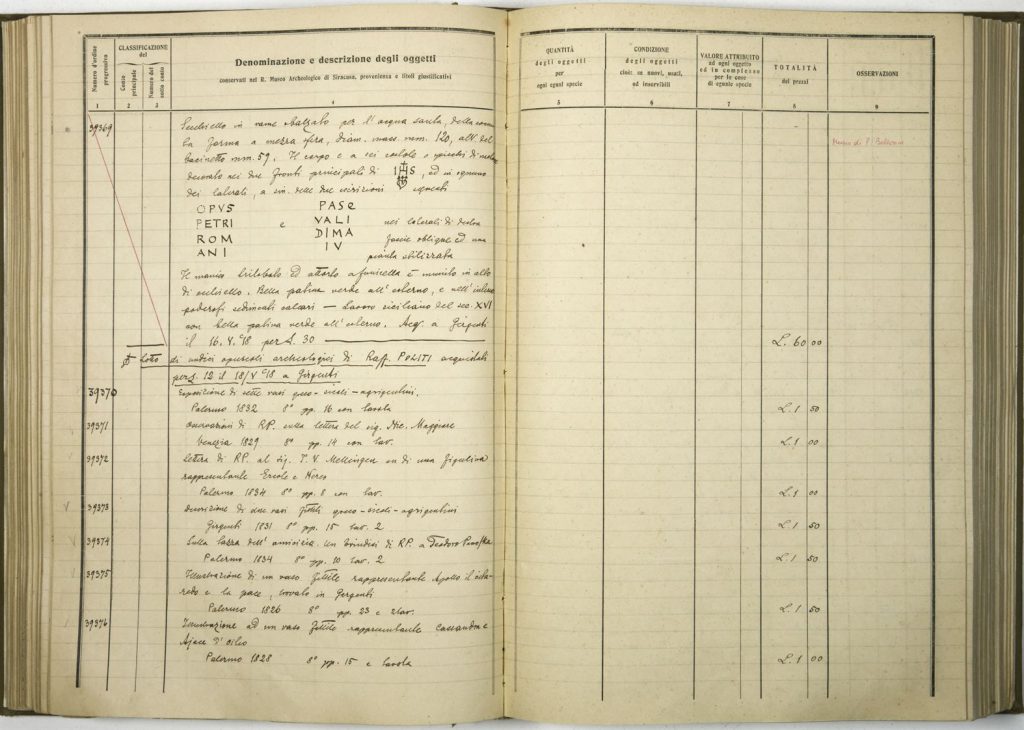 Numero d'ordine progressivo
CLASSIFICAZIONE del
Conto principale
Numero del sotto conto
Denominazione e descrizione degli oggetti
conservati nel R. Museo Archeologico di Siracusa, provenienza e titoli giustificativi
1 2 3 4
QUANTITÀ degli oggetti per ogni egual specie
CONDIZIONE degli oggetti cioè: se nuovi, usati, od inservibili
VALORE ATTRIBUITO ad ogni oggetto ed in complesso per le cose di eguale specie
TOTALITÀ dei prezzi
OSSERVAZIONI
5 6 7 8 9
39369 Secchiello in rame sbalzato per l'acqua santa, della
la forma a mezza sfera, diam. mass mm. 120, alt. del
bacinetto mm. 59. Il corpo e a sei costole o spicchi di
decorato nei due fronti principali di IHS, ed in ognuno
dei laterali, a sin. delle due iscrizioni
OPVS PASQ
PETRI e VALI nei laterali di destra
ROM DIMA fascie oblique ed una
ANI IV pianta stilizzata
Il manico trilobato ed attorto a funicella è munito in alto
di occhiello. Bella patina verde all'esterno, e nell'interno
poderosi sedimenti calcari — Lavoro siciliano del sec. XVI
con bella patina verde all'esterno. Acq. a Girgenti
il 16. V. 918 per L. 30 L. 60 00
Museo di P.
Lotto di undici opuscoli archeologici di Raff. POLITI acquistati
per L. 12 il 18/V 918 a Girgenti
39370 Esposizione di sette vasi greco-siculi-agrigentini.
Palermo 1832 8° pp. 16 con tavola L. 1 50
39371 Osservazioni di RP. sulla lettera del sig. Nic. Maggiore
Venezia 1829 8° pp. 14 con tav. L. 1 00
39372 Lettera di RP. al sig. T. V. Mellingen su di una figulina
rappresentante Ercole e Nereo
Palermo 1834 8° pp. 8 con tav. L. 1 00
39373 Descrizione di due vasi fittili greco-siculi-agrigentini
Girgenti 1831 8° pp. 15 tav. 2 L. 1 50
39374 Sulla tazza dell'amicizia. Un brindisi di RP. a Teodoro Panofka
Palermo 1834 8° pp. 10 tav. 2 L. 1 50
39375 Illustrazione di un vaso fittile rappresentante Apollo il cita-
redo e la pace, trovato in Girgenti
Palermo 1826 8° pp. 23 e 2 tav. L. 1 50
39376 Illustrazione ad un vaso fittile rappresentante Cassandra e
Ajace d'Oileo
Palermo 1828 8° pp. 15 e tavola L. 1 00